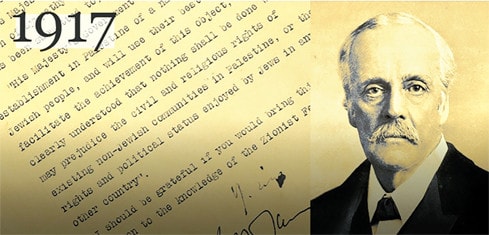 1917
"His Majes
establishment in Palestine of a
Jewish people, and will use their best
facilitate the achievement of this object,
clearly understood that nothing shall be done
may prejudice the civil and religious rights of
existing non-Jewish communities in Palestine, or the
rights and political status enjoyed by Jews in any
other country".
I should be grateful if you would bring
to the knowledge of the Zionist